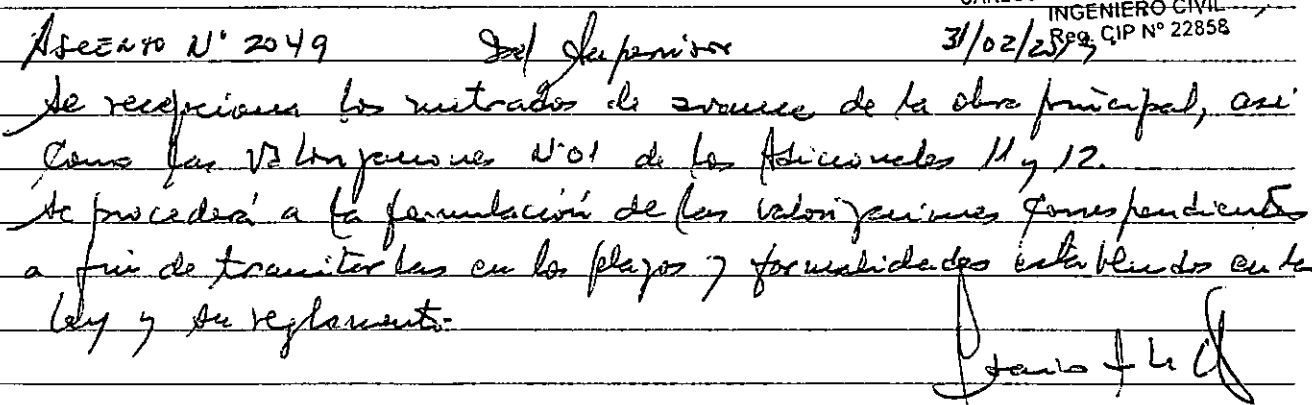 INGENIERO CIVIL
Reg. CIP Nº 22858
Asiento Nº 2049 Del Supervisor 31/02/
Se recepciona los metrados de avance de la obra principal, así
como las Valorizaciones Nº01 de los Adicionales 11 y 12.
Se procederá a la formulación de las valorizaciones correspondientes
a fin de tramitarlas en los plazos y formalidades establecidos en la
ley y su reglamento.